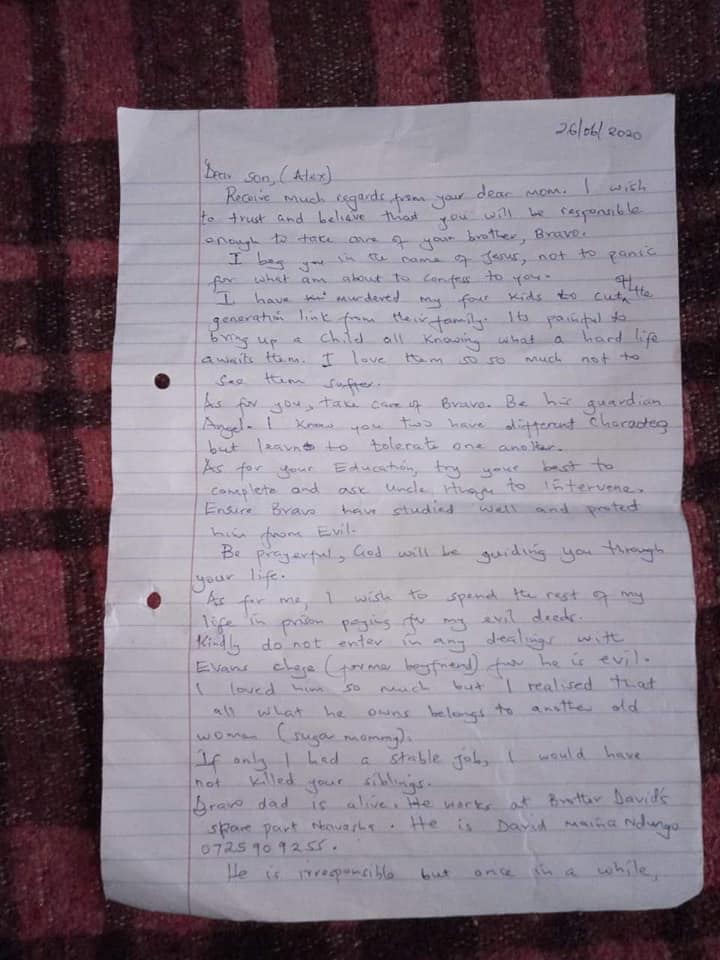 26/06/2020
Dear Son, (Alex)
Receive much regards from your dear mom. I wish
to trust and believe that you will be responsible
enough to take care of your brother, Bravo.
I beg you in the name of Jesus, not to panic
for what am about to confess to you.
I have murdered my four kids to cut off the
generation link from their family. Its painful to
bring up a child all knowing what a hard life
awaits them. I love them so so much not to
see them suffer.
As for you, take care of Bravo. Be his guardian
Angel. I know you two have different Characters
but learn to tolerate one another.
As for your Education, try your best to
complete and ask uncle to intervene.
Ensure Bravo have studied well and protect
him from Evil.
Be prayerful, God will be guiding you through
your life.
As for me, I wish to spend the rest of my
life in prison paying for my evil deeds.
Kindly do not enter in any dealings with
Evans chege (former boyfriend) for he is evil.
I loved him so much but I realised that
all what he owns belongs to another old
woman (sugar mommy).
If only I had a stable job, I would have
not killed your siblings.
Bravo dad is alive. He works at Brother David's
spare part. He is David Maina Ndungo
0725909255.
He is irresponsible but once in a while,